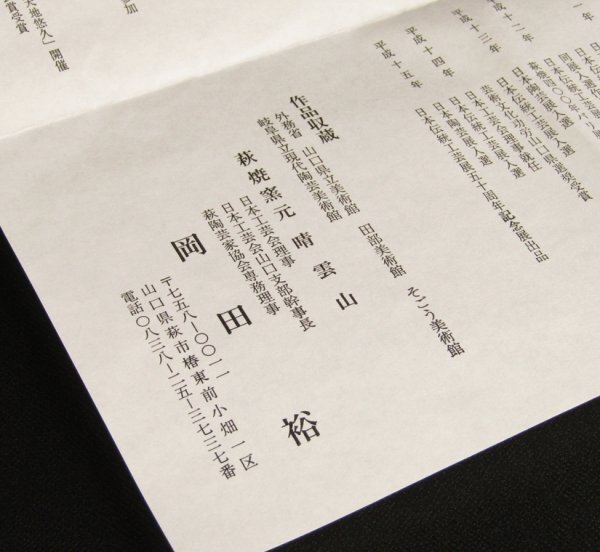 加
地悠久」開催
賞受賞
十二年
日本伝統工芸展入選
芸術文化功労山口県選奨受賞
平成十三年
日本工芸会理事就任
日本伝統工芸展入選
平成十四年
日本陶芸展入選
日本伝統工芸展入選
平成十五年
日本伝統工芸展五十周年記念展出品
作品収蔵
外務省 山口県立美術館 田部美術館 そごう美術館
岐阜県立現代陶芸美術館
萩焼窯元晴雲山
日本工芸会理事
日本工芸会山口支部幹事長
萩陶芸家協会専務理事
岡田裕
〒七五八-〇〇一一
山口県萩市椿東前小畑一区
電話〇八三八-二五-三七三七番